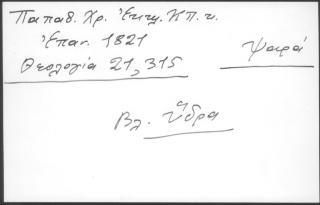 Παπαδ. Χρ. Ἐκκλ. Κ Π. κ.
Ἐπαν. 1821
Θεολογία 21,315
Ψαρά
Βλ. Ὕδρα